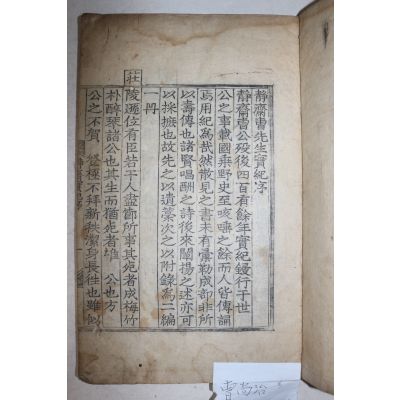 靜齋曺先生實紀序
靜齋曺公歿後四百有餘年實紀鋟行于世
公之事載國乘野史至咳唾之餘而人皆傳誦
焉用紀為哉然散見之書未有彙勒成部非所
以壽傳也諸賢唱酬之詩後來闡揚之述亦可
以採摭也故先之以遺藁次之以附錄為二編
一冊
莊
陵遜位有臣若干人盡節所事其死者成梅竹
朴醉琴諸公也其生而猶死者惟 公也方
公之不賀 登極不拜新秩潔身長往也雖似
曺尚治